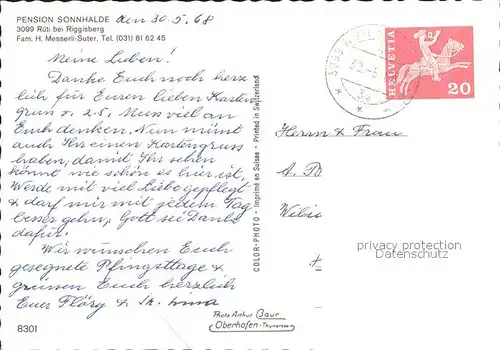 PENSION SONNHALDE den 30.5.68
3099 Rüti bei Riggisberg
Fam. H. Messerli-Suter, Tel. (031) 81 62 45
Meine Lieben!
Danke Euch noch herz
lich für Euren lieben Karten
gruss v. 2.5. Muss viel an
Euch denken. Nun müsst
auch Ihr einen Kartengruss
haben, damit Ihr sehen
könnt wie schön es hier ist.
Werde mit viel Liebe gepflegt
& darf mir mit jedem Tag
besser gehn, Gott sei Dank
dafür.
Wir wünschen Euch
gesegnete Pfingsttage &
grüssen Euch herzlich
Euer Flöry &
8301
COLOR-PHOTO - Imprimé en Suisse - Printed in Switzerland
HELVETIA
20
3099
Herrn & Frau
A. B
privacy protection
Datenschutz
Photo Arthur Baur
Oberhofen-Thunersee